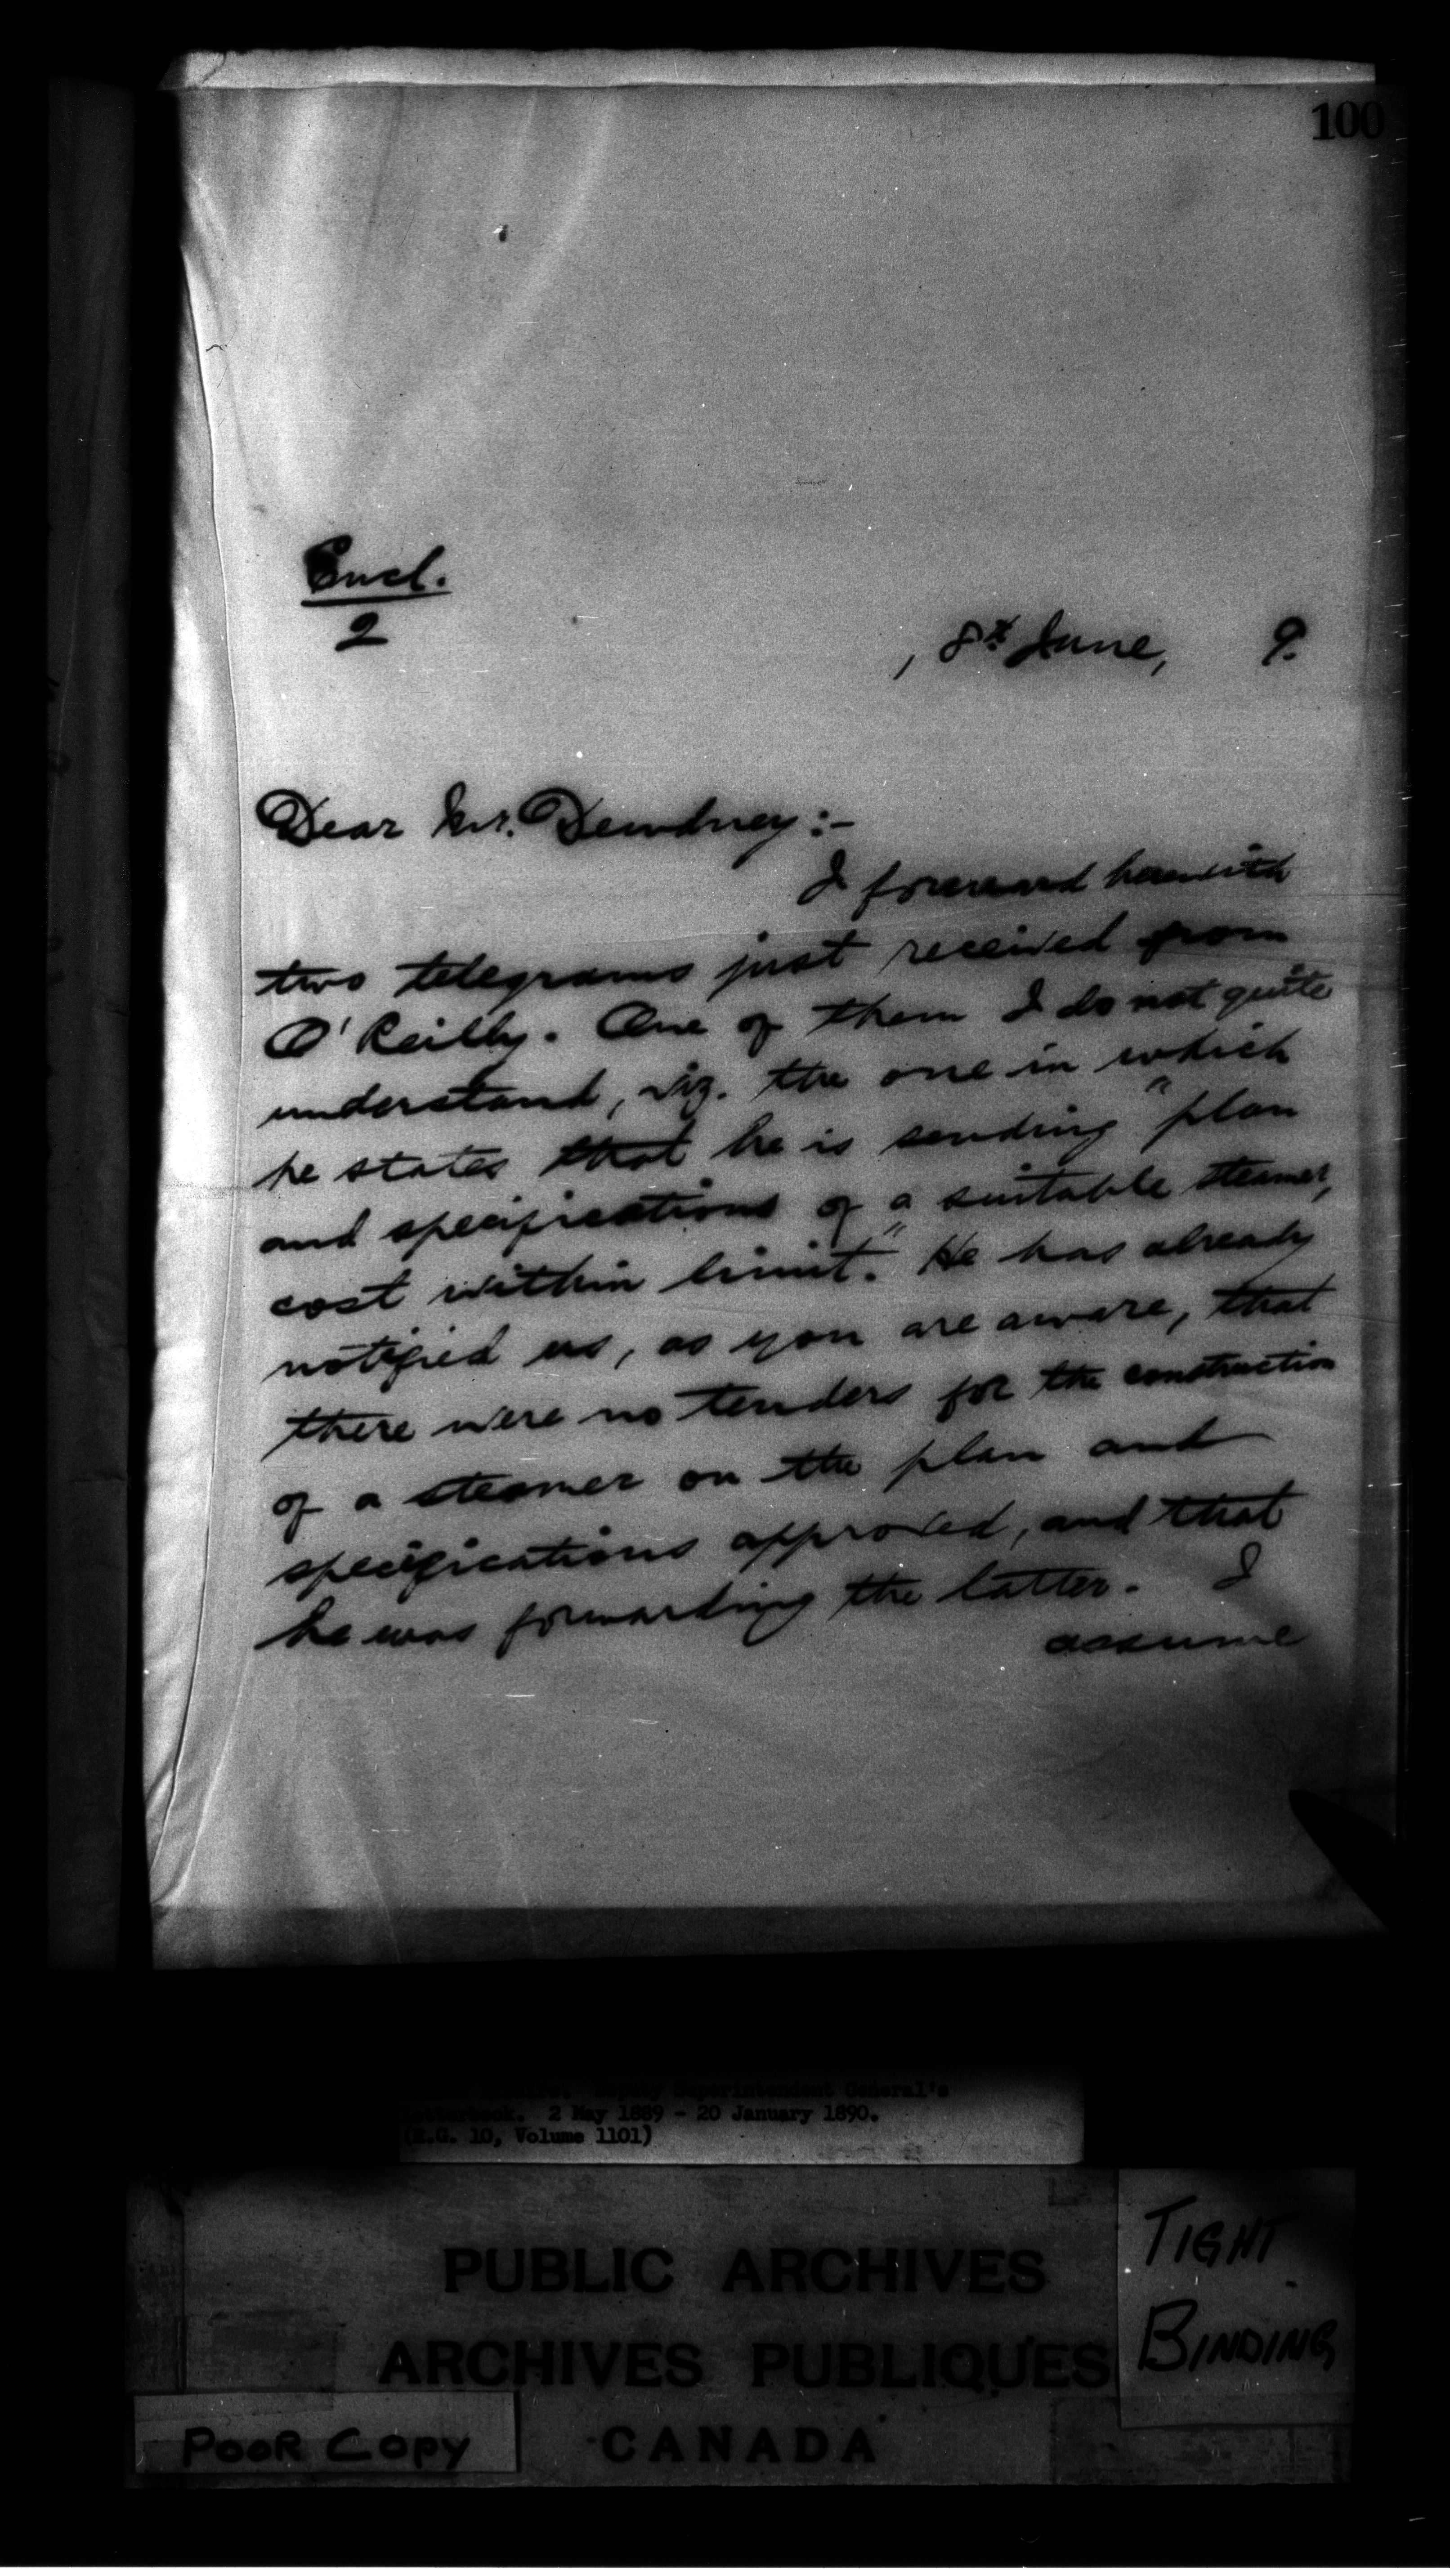 100
Encl.
2
, 8th June, 9.
Dear Mr. Dewdney:-
I forward herewith
two telegrams just received from
O'Reilly. One of them I do not quite
understand, viz. the one in which
he states that he is sending "plan
and specifications of a suitable steamer,
cost within limit." He has already
notified us, as you are aware, that
there were no tenders for the construction
of a steamer on the plan and
specifications approved, and that
he was forwarding the latter. I
assume
Affairs. Deputy Superintendent General's
Letterbook. 2 May 1889 - 20 January 1890.
(R.G. 10, Volume 1101)
PUBLIC ARCHIVES
ARCHIVES PUBLIQUES
CANADA
TIGHT
BINDING
POOR COPY